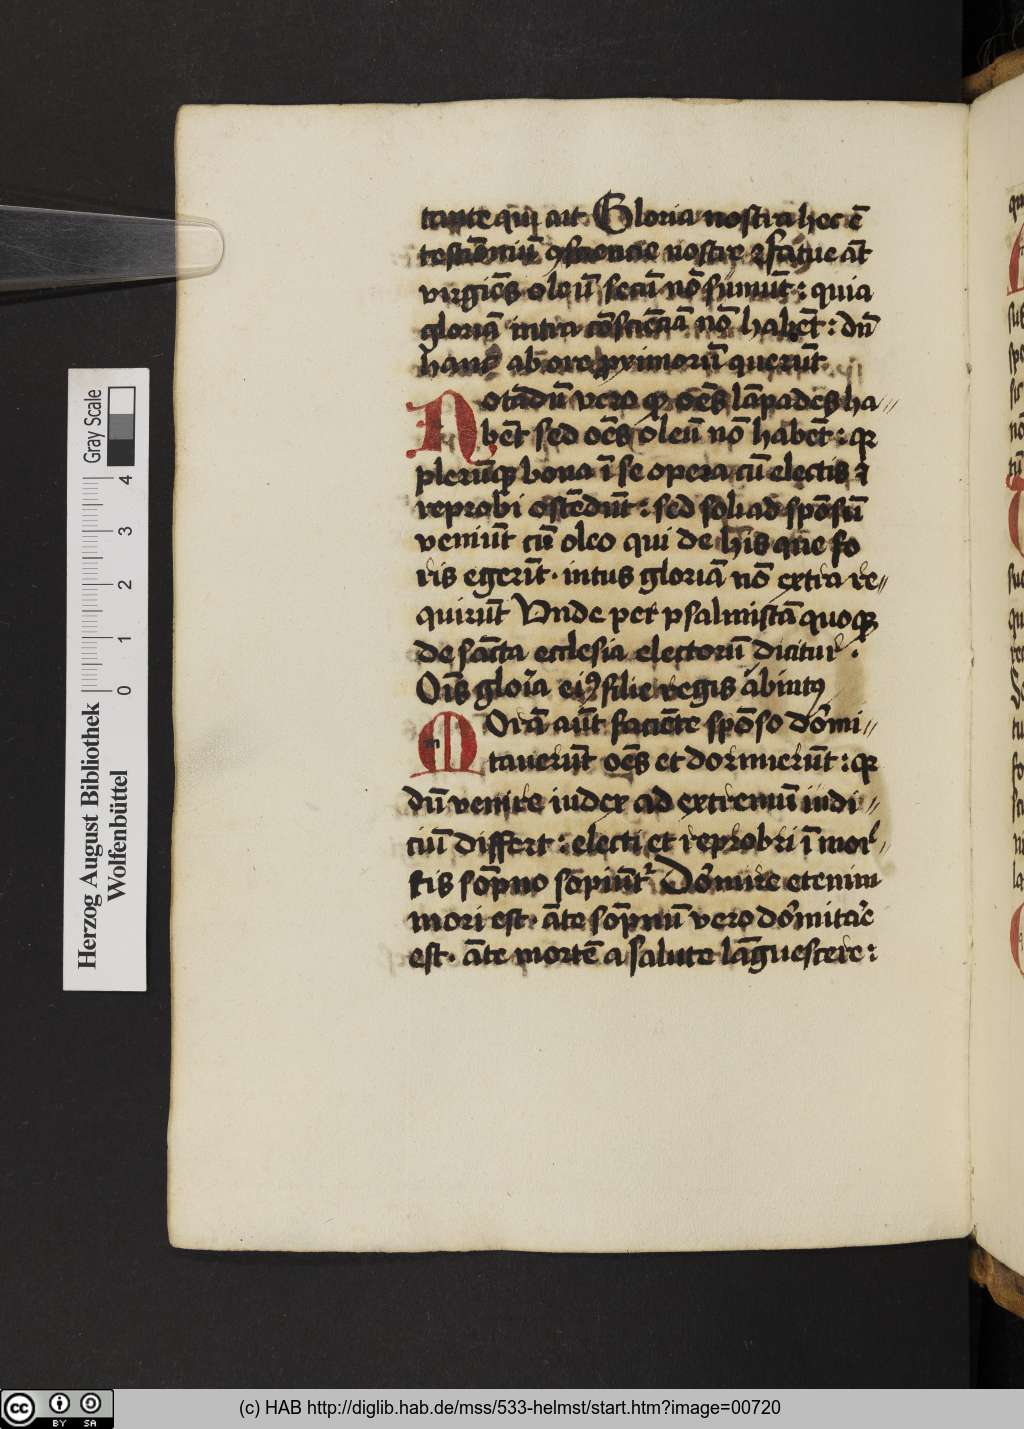 tante qui ait Gloria nostra hec ē
testīōniū ꝯsciencie nostre ⁊ fatue āt
virgiēs oleū secū nō sumūt : quia
gloriā intra cōsciēciā nō habēt : dū
hanc ab ore primorū querūt
Notādū vero qꝫ oēs lāpades ha〃
bēt sed oēs oleū nō habēt : qꝛ
plerūqꝫ bona ī se opera cū electis ⁊
reprobi ostēdūt : sed soli ad spōsū
veniūt cū oleo qui de his que fo
ris egerūt · intus gloriā nō extra re〃
quirūt Vnde per psalmistā quoqꝫ
de sācta ecclesia electorū dicitur .
Oīs gloīa eiꝰ filie regis abintꝰ
Morā aūt faciēte spōso dōmi〃
tauerūt oēs et dormierūt : qꝛ
dū venire iudex ad extremū iudi〃
ciū differt : electi et reprobri ī mor〃
tis sōpno sopiūtᷣ Dōmire etenim
mori est · āte sōpnū vero dōmitar̄e
est · āte mortē a salute lāguescere :
Herzog August Bibliothek
Wolfenbüttel
Gray Scale
0 1 2 3 4
cc BY SA
(c) HAB http://diglib.hab.de/mss/533-helmst/start.htm?image=00720